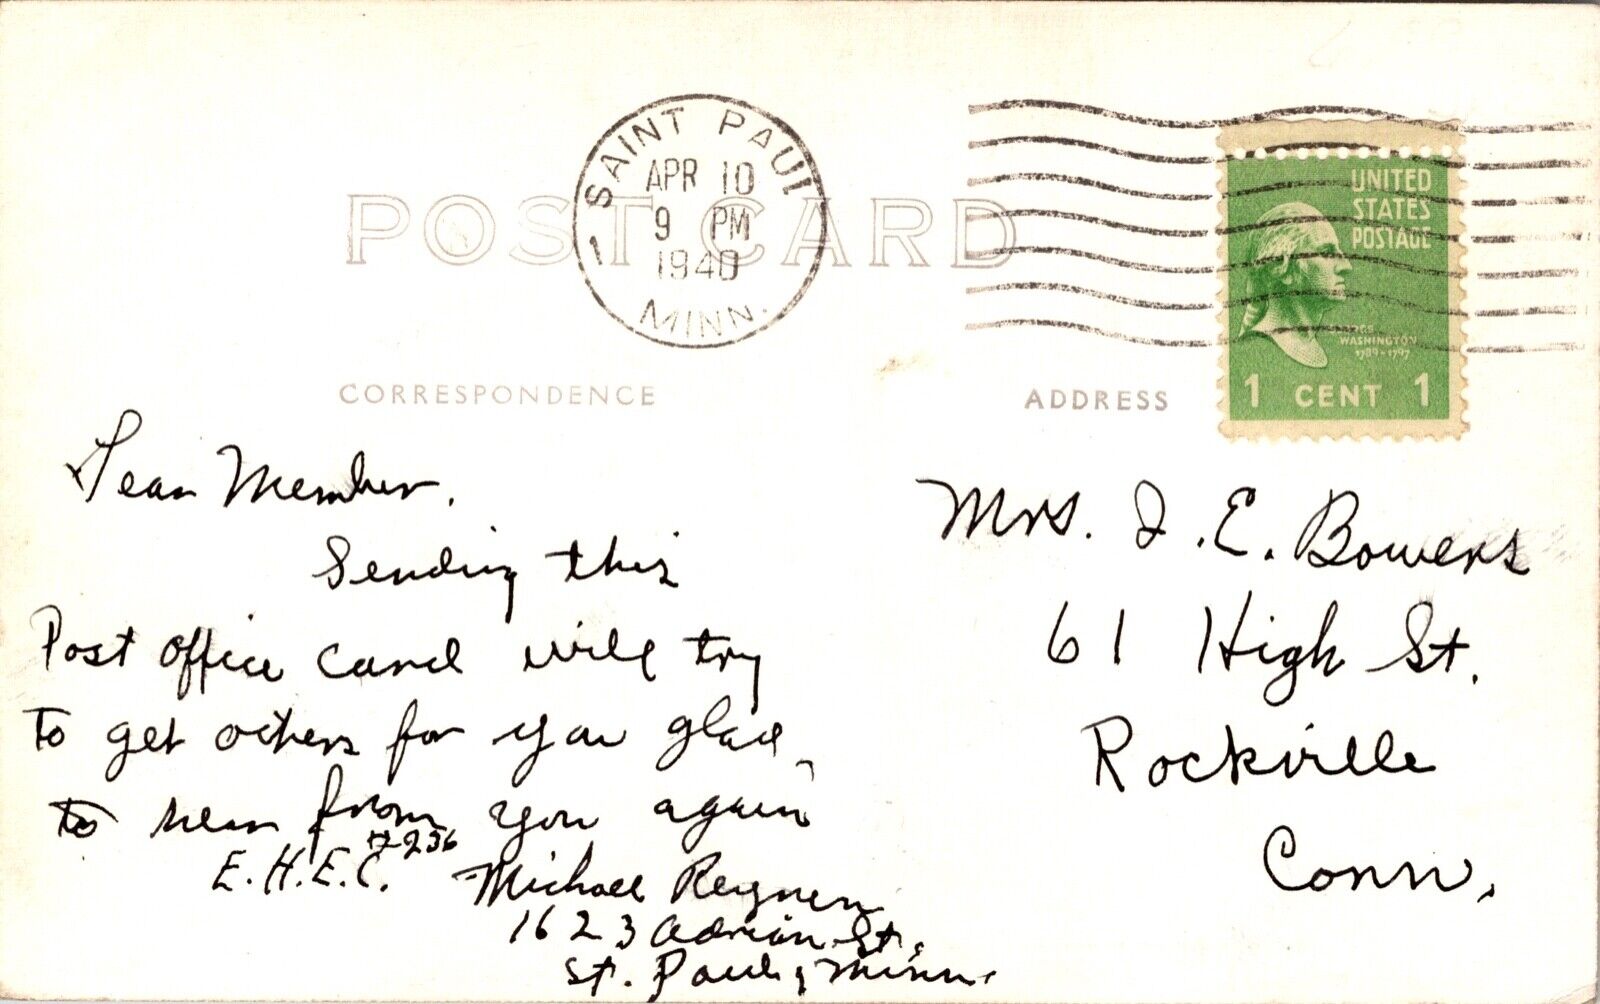 SAINT PAUL
APR 10
9 PM
1940
MINN.
1
POST CARD
UNITED
STATES
POSTAGE
WASHINGTON
1789-1797
1 CENT 1
CORRESPONDENCE
ADDRESS
Dear Member,
Sending this
Post office card will try
to get others for you glad
to hear from you again
E.H.E.C.
Michael Reynen
1623 Adrian St.
St. Paul, Minn.
Mrs. J. E. Bowers
61 High St.
Rockville
Conn.